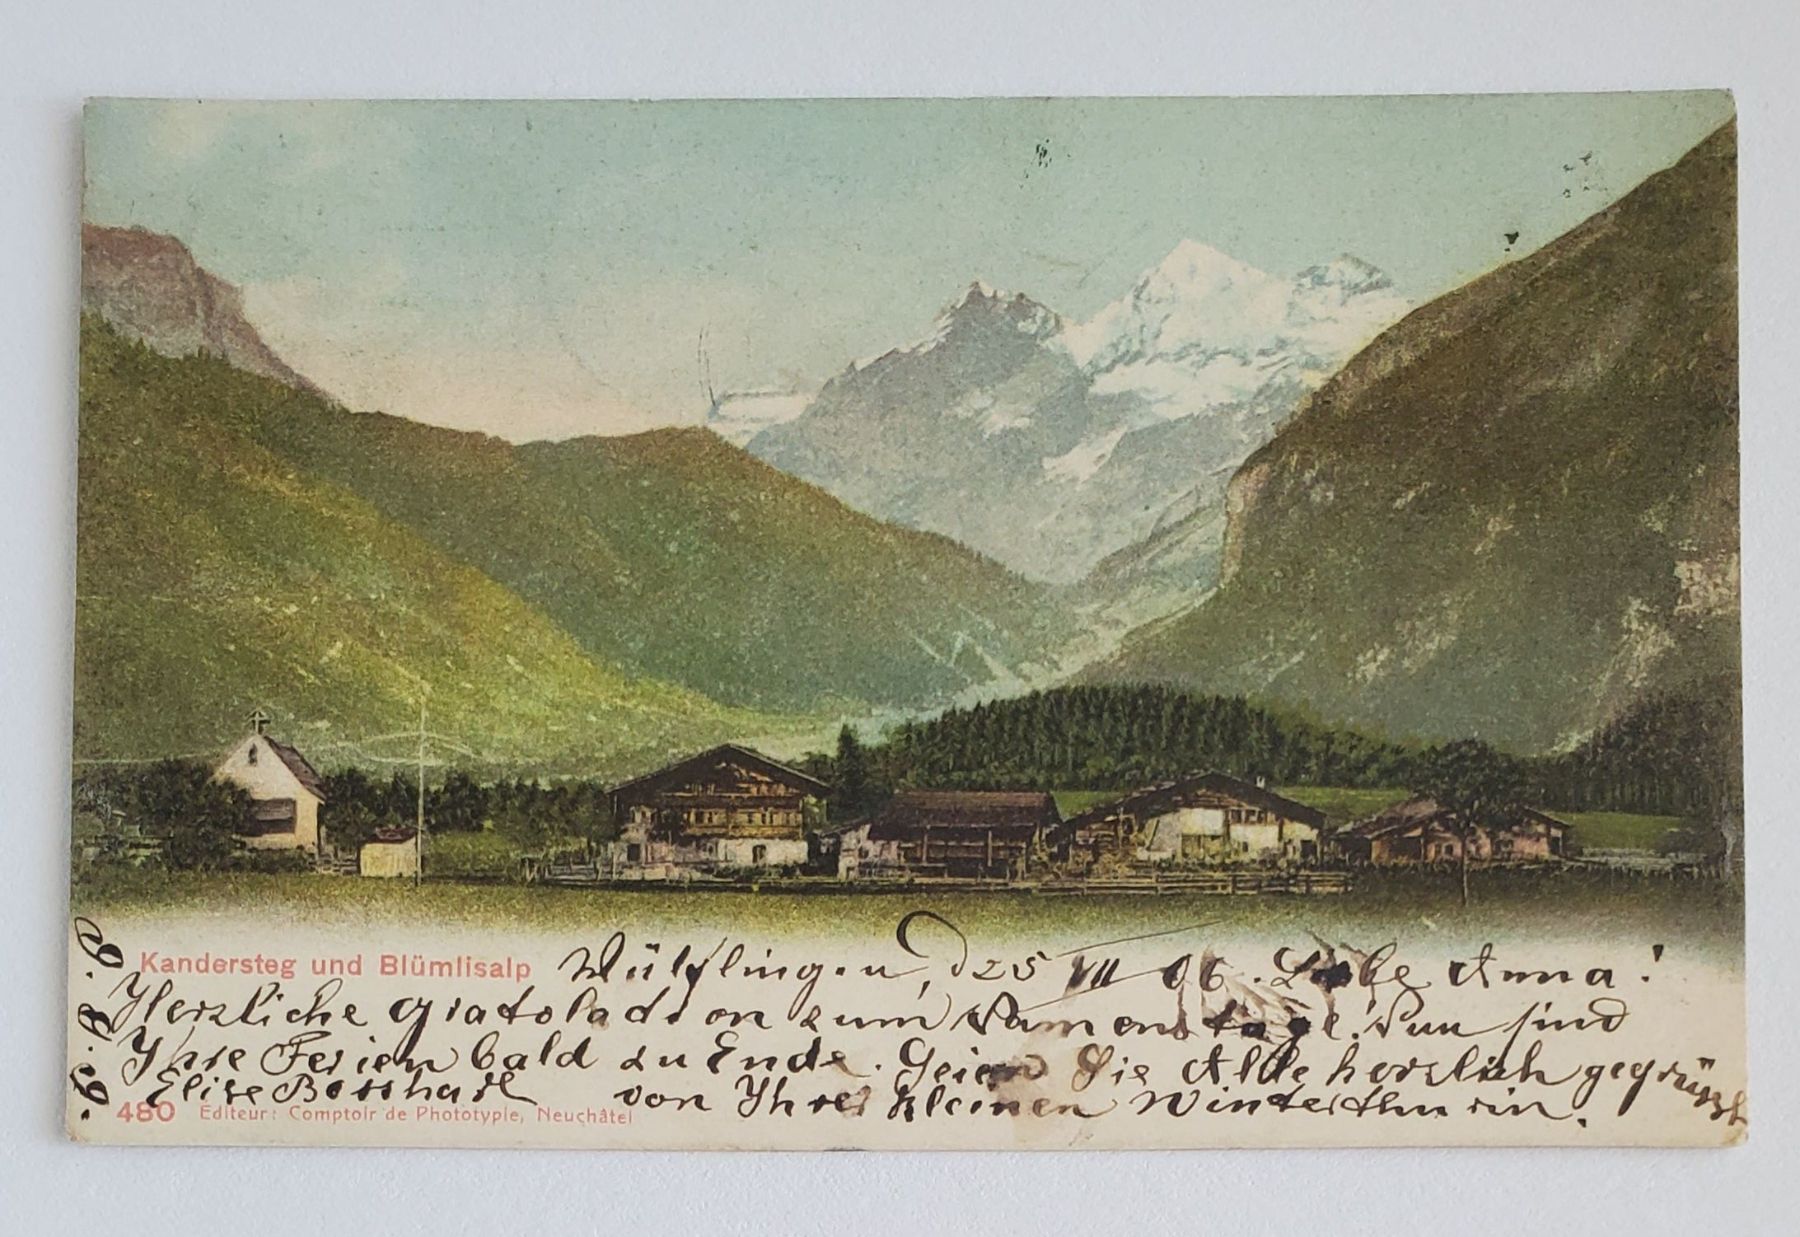 Kandersteg und Blümlisalp
Wülflingen, d 25 VII 06. Liebe Anna!
Herzliche Gratoladion zum Namenstage! Nun sind
Ihre Ferien bald zu Ende. Seien Sie Alle herzlich gegrüsst
Elise Bosshard von Ihrer kleinen Winterthurin.
480 Editeur: Comptoir de Phototypie, Neuchâtel